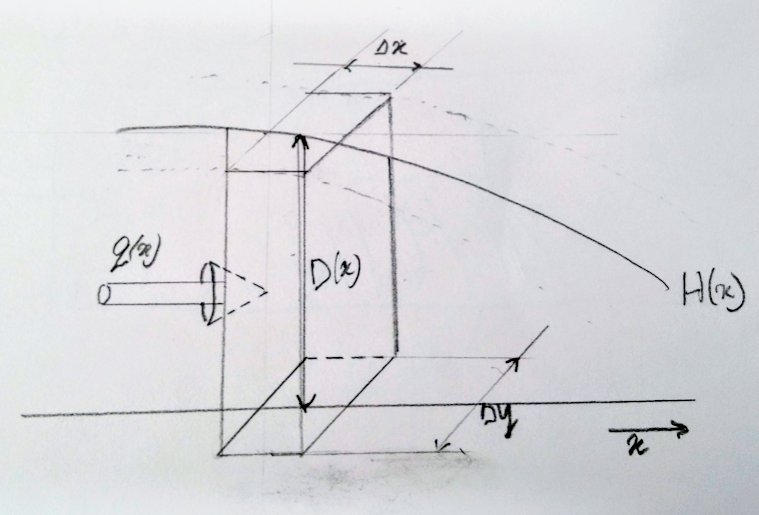 Δx
q(x)
D(x)
H(x)
Δy
x